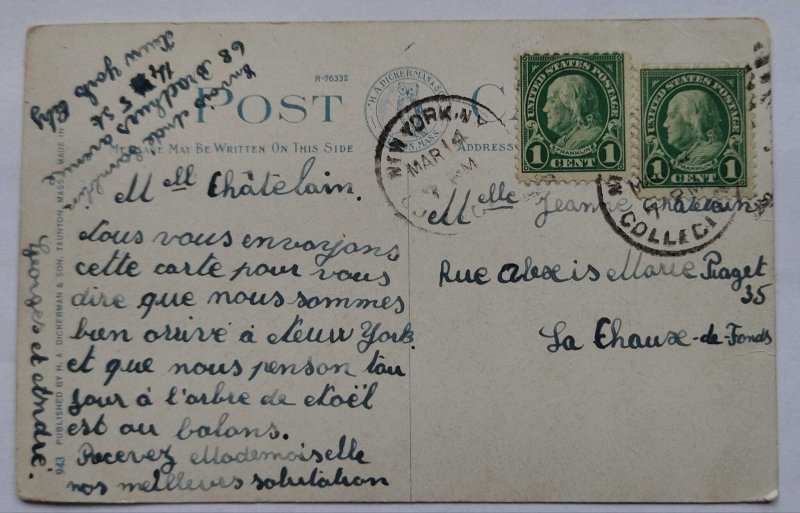 R-76332
POST
MESSAGE MAY BE WRITTEN ON THIS SIDE
H. A. DICKERMAN & SON
MASS.
Mell Châtelain.
Nous vous envoyons
cette carte pour vous
dire que nous sommes
bien arrivé à Neuw York.
et que nous penson tou
jour à l'arbre de Noël
est au balons.
Recevez Mademoiselle
nos meilleurs salutation
Georges et André.
68
New York City
943 PUBLISHED BY H. A. DICKERMAN & SON, TAUNTON, MASS. MADE IN
NEW YORK, N.Y.
MAR 14
PM
UNITED STATES POSTAGE
FRANKLIN
1 CENT 1
UNITED STATES POSTAGE
FRANKLIN
1 CENT 1
7 PM
COLLEC
Melle Jeanne Châtelain
Rue Alexis Marie Piaget
35
La Chaux-de-Fonds